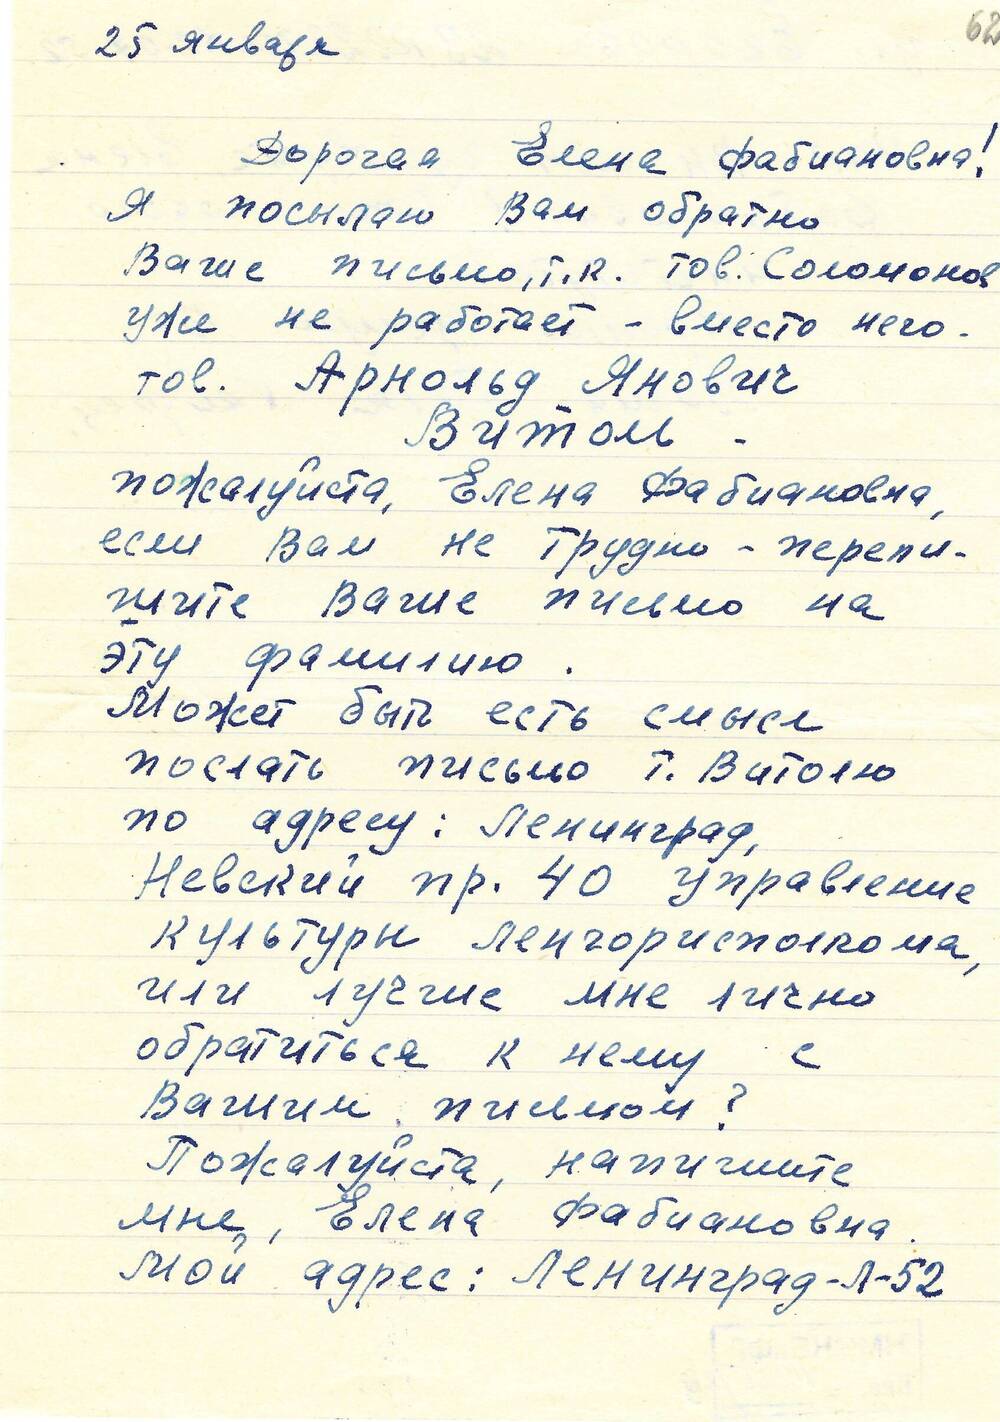 62
25 января
Дорогая Елена Фабиановна!
Я посылаю Вам обратно
Ваше письмо, т.к. тов. Соломонов
уже не работает - вместо него -
тов. Арнольд Янович
Витоль -
пожалуйста, Елена Фабиановна,
если Вам не трудно - перепи-
шите Ваше письмо на
эту фамилию.
Может быть есть смысл
послать письмо т. Витолю
по адресу: Ленинград,
Невский пр. 40 управление
культуры Ленгорисполкома,
или лучше мне лично
обратиться к нему с
Вашим письмом?
Пожалуйста, напишите
мне, Елена Фабиановна.
Мой адрес: Ленинград-Л-52